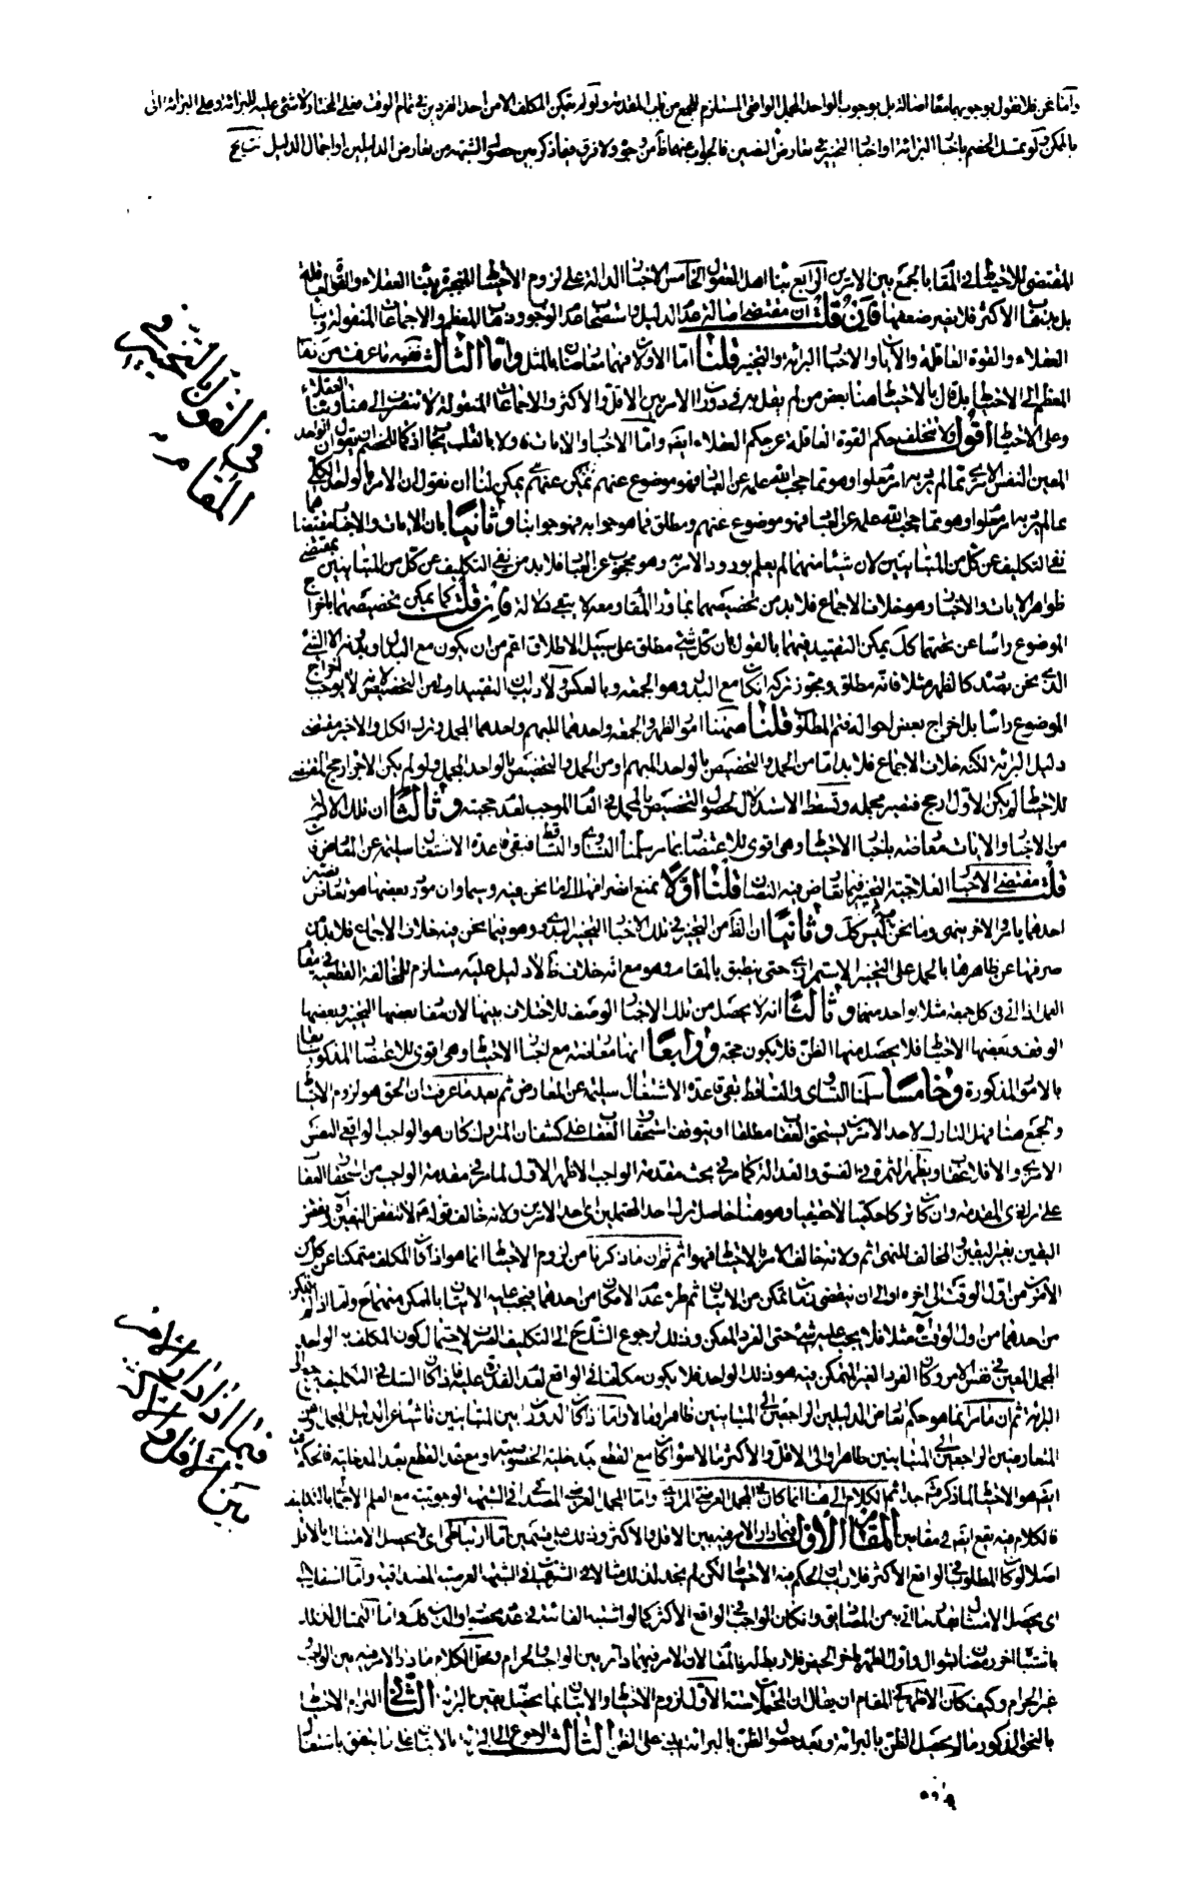 وأما نحن فلا نقول بوجوبهما معا اصالة بل بوجوب الواحد المجمل الواقعي المستلزم للجمع من باب المقدمة ولو لم يتمكن المكلف الا من احد الفردين في تمام الوقت فعلى المختار لا شئ عليه للبرائة وعلى البرائة اتى
بالممكن ولو تمسك الخصم باخبار البرائة او اخبار التخيير في تعارض النصين فالجواب عنهما ظاهر ولا فرق فيما ذكر بين حصول الشبهة من تعارض الدليلين او اجمال الدليل
المقتضى للاحتياط في المقام بالجمع بين الامرين الرابع بناء اهل العقول الخامس الاخبار الدالة على لزوم الاحتياط المنجبرة ببناء العقلاء والقوة العاقلة
بل بذهاب الاكثر فلا يضر ضعفها فان قلت ان مقتضى اصالة عدم الدليل واستصحاب عدم الوجوب وذهاب المعظم والاجماعات المنقولة وبناء
العقلاء والقوة العاقلة والآيات والاخبار البرائة والتخيير قلنا اما الاولان فهما معارضان بالمثل واما الثالث ففيه ما عرفت من ذهاب
المعظم الى الاحتياط بل قال بالاحتياط هنا بعض من لم يقل به في دوران الامر بين الاقل والاكثر والاجماعات المنقولة لا تنصرف الى هنا وبناء العقلاء
وعلى الاحتياط اقول ولا يتخلف حكم القوة العاقلة عن حكم العقلاء ايضا واما الاخبار والايات فاولا بالقلب
المعين النفس الامري مما لم يرد به امر معلوم وهو مما حجب الله علمه عن العباد فهو موضوع عنهم يمكن لنا ان نقول ان الامر بالواحد الكلي
مما لم يرد به امر معلوم وهو مما حجب الله علمه عن العباد فهو موضوع عنهم ومطلق فما هو جوابه فهو جوابنا وثانيا بان الايات والاخبار مقتضاها
نفى التكليف عن كل من المتباينين لان شيئا منهما لم يعلم بورود الامر به وهو محجوب عن العباد فلا بد من نفي التكليف عن كل من المتباينين بمقتضى
ظواهر الايات والاخبار وهو خلاف الاجماع فلا بد من تخصيصهما بما وراء المقام ومعه لا يبقى دلالة فان قلت كما يمكن تخصيصهما باخراج
الموضوع رأسا عن تحتهما كذلك يمكن التقييد فيهما بالقول بان كل شئ مطلق على سبيل الاطلاق اعم من ان يكون مع البدل او بدونه الا الشئ
الذي نحن بصدده كالظهر مثلا فانه مطلق ويجوز تركه اذا كان مع البدل وهو الجمعة وبالعكس ولا ريب ان التقييد اولى من التخصيص لانه لا يوجب اخراج
الموضوع رأسا بل اخراج بعض احواله فتم المطلوب قلنا هيهنا امور الظهر والجمعة واحدهما المبهم واحدهما المجمل وترك الكل والاخير مقتضى
دليل البرائة لكنه خلاف الاجماع فلا بد اما من الحمل والتخصيص بالواحد المبهم او من الحمل والتخصيص بالواحد المجمل ولو لم يكن الاخير ارجح المقتضى
للاحتياط لم يكن الاول ارجح فتصير مجملة ويسقط الاستدلال لحصول التخصيص بالمجمل في العام الموجب لعدم حجيته وثالثا ان تلك الادلة
من الاخبار والايات معارضة باخبار الاحتياط وهي اقوى للاعتضاد بما مر سلمنا التساوي والتساقط فيبقى قاعدة الاشتغال سليمة عن المعارض فان
قلت مقتضى الاخبار العلاجية التخيير فيما تعارض فيه النصان قلنا اولا نمنع انصرافها الى ما نحن فيه وسيما وان مورد بعضها هو تعارض نصين
احدهما يامر والاخر ينهى وما نحن فيه ليس كذلك وثانيا ان الظاهر من التخيير في تلك الاخبار التخيير البدوي وهو فيما نحن فيه خلاف الاجماع فلا بد من
صرفها عن ظاهرها بالحمل على التخيير الاستمراري حتى ينطبق بالمقام وهو مع انه خلاف الظاهر لا دليل عليه مستلزم للمخالفة القطعية في مقام
العمل اذا اتى في كل جمعة مثلا بواحد منهما وثالثا انه لا يحصل من تلك الاخبار الوصف للاختلاف بينها لان مفاد بعضها التخيير وبعضها
الوقف وبعضها الاحتياط فلا يحصل منها الظن فلا يكون حجة ورابعا انها معارضة مع اخبار الاحتياط وهي اقوى للاعتضاد
بالامور المذكورة وخامسا سلمنا التساوي والتساقط بقي قاعدة الاشتغال سليمة عن المعارض ثم بعد ما عرفت ان الحق هو لزوم الاحتياط
والجمع هنا فهل التارك لاحد الامرين يستحق العقاب مطلقا او يتوقف استحقاق العقاب على كشف ان المتروك كان هو الواجب الواقعي النفس
الامري والا فلا عقاب ويظهر الثمرة في الفسق والعدالة كما مر في بحث مقدمة الواجب الاظهر الاول لما مر في مقدمة الواجب من استحقاق العقاب
على ترك ذي المقدمة وان كان تركا حكميا لا حقيقيا وهو هنا حاصل بترك احد المحتملين اي احد الامرين ولانه خالف قوله ع لا تنقض اليقين ونقض
اليقين بغير اليقين والمخالف للنهي اثم ولانه خالف الامر بالاحتياط فهو اثم ثم ان ما ذكرنا من لزوم الاحتياط انما هو اذا كان المكلف متمكنا عن كل من
الامرين من اول الوقت الى اخره او الى ان ينقضي زمان تمكن من الاتيان ثم طرء عدم الامكان من احدهما فيجب عليه الاتيان بالممكن منهما ح واما اذا لم يتمكن
من احدهما من اول الوقت مثلا فلا يجب عليه شئ حتى الفرد الممكن وذلك لرجوع الشك ح الى التكليف الصرف لاحتمال كون المكلف به الواحد
المجمل المعين في نفس الامر وكان الفرد الغير المتمكن فيه هو ذلك الواحد فلا يكون مكلفا في الواقع لعدم القدرة عليه فاذا كان الشك في التكليف فيرجع الى
البرائة ثم ان ما مر انما هو حكم تعارض الدليلين الراجعين الى المتباينين ظاهرا وفالا واما اذا كان الدوران بين المتباينين ناشئا عن الدليل المجمل او من
المتعارضين الراجعين الى المتباينين ظاهرا والى الاقل والاكثر فالا سواء كان مع القطع بمدخلية الخصوصية او مع عدم القطع بعدم المدخلية فالحكم فيهن
ايضا هو الاحتياط لما ذكر ثم الكلام الى هنا انما كان في المجمل العرضي المرادي واما المجمل العرضي المصداقي في الشبهة الوجوبية مع العلم الاجمالي بالتكليف
فالكلام فيه يقع ايضا في مقامين المقام الاول فيما دار الامر فيه بين الاقل والاكثر وذلك على قسمين اما ارتباطي اي لا يحصل الامتثال بالاقل
اصلا لو كان المطلوب في الواقع الاكثر فلا ريب ان الحكم فيه الاحتياط لكن لم نجد لذلك مثالا في الشرعيات في الشبهة العرضية المصداقية واما استقلالي
اي يحصل الامتثال بقدر ما اتى به من المصاديق وان كان الواجب في الواقع الاكثر كما لو اشتبه الفائتة في عدد مخصوص او الدين كذلك واما التمثال لذلك
باشتباه اخر رمضان بشوال واول الطهر باخر الحيض فلا ربط له بالمقام لان الامر فيهما دائر بين الواجب والحرام ومحل الكلام ما دار الامر فيه بين الواجب
غير الحرام وكيف كان الاظهر في المقام ان يقال ان المحتملات ستة الاول لزوم الاحتياط والاتيان بما يحصل به يقين البرائة الثاني التزام الاحتياط
بالنحو المذكور ما لم يحصل الظن بالبرائة وبعد حصول الظن بالبرائة يبنى على الظن الثالث الرجوع الى
في القول بالتخيير في
المقام
فيما اذا دار الامر
بين الاقل والاكثر